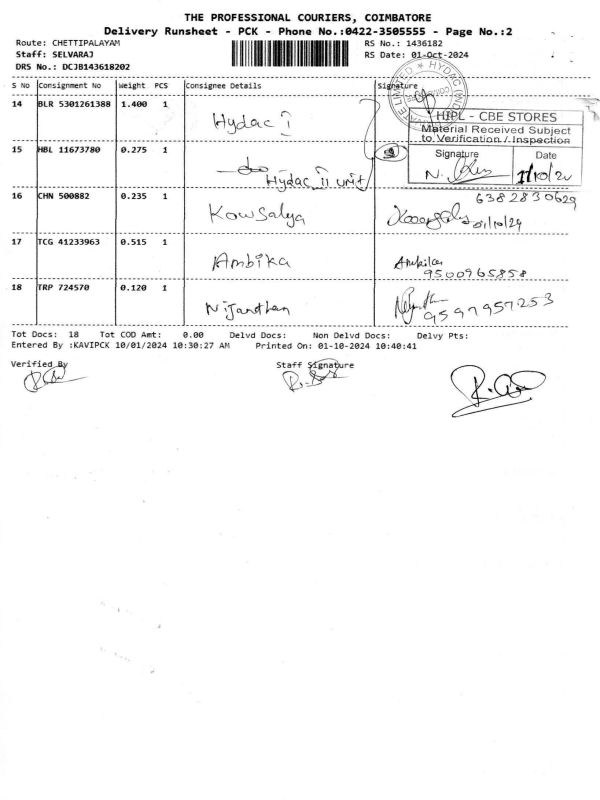 THE PROFESSIONAL COURIERS, COIMBATORE
Delivery Runsheet - PCK - Phone No.:0422-3505555 - Page No.:2
Route: CHETTIPALAYAM RS No.: 1436182
Staff: SELVARAJ RS Date: 01-Oct-2024
DRS No.: DCJB143618202
S No Consignment No Weight PCS Consignee Details Signature
14 BLR 5301261388 1.400 1 Hydac I
HYDAC (IND
HIPL - CBE STORES
Material Received Subject
to Verification / Inspection
Signature Date
15 HBL 11673780 0.275 1 -do- Hydac II unit
16 CHN 500882 0.235 1 Kowsalya 6382830629
01/10/24
17 TCG 41233963 0.515 1 Ambika Ambika
9500965858
18 TRP 724570 0.120 1 Nijanthan
9597957253
Tot Docs: 18 Tot COD Amt: 0.00 Delvd Docs: Non Delvd Docs: Delvy Pts:
Entered By :KAVIPCK 10/01/2024 10:30:27 AM Printed On: 01-10-2024 10:40:41
Verified By Staff Signature